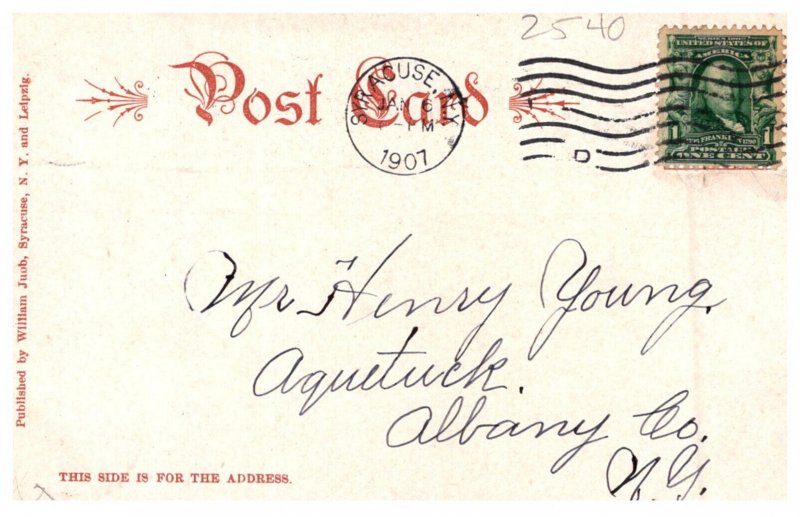 2540
Post Card
SYRACUSE, N.Y.
JAN 6
-1 PM
1907
D
SERIES 1902
UNITED STATES OF AMERICA
FRANKLIN 1790
POSTAGE
1 ONE CENT 1
Published by William Juob, Syracuse, N. Y. and Leipzig.
Mr Henry Young.
Aquetuck.
Albany Co.
N.Y.
THIS SIDE IS FOR THE ADDRESS.